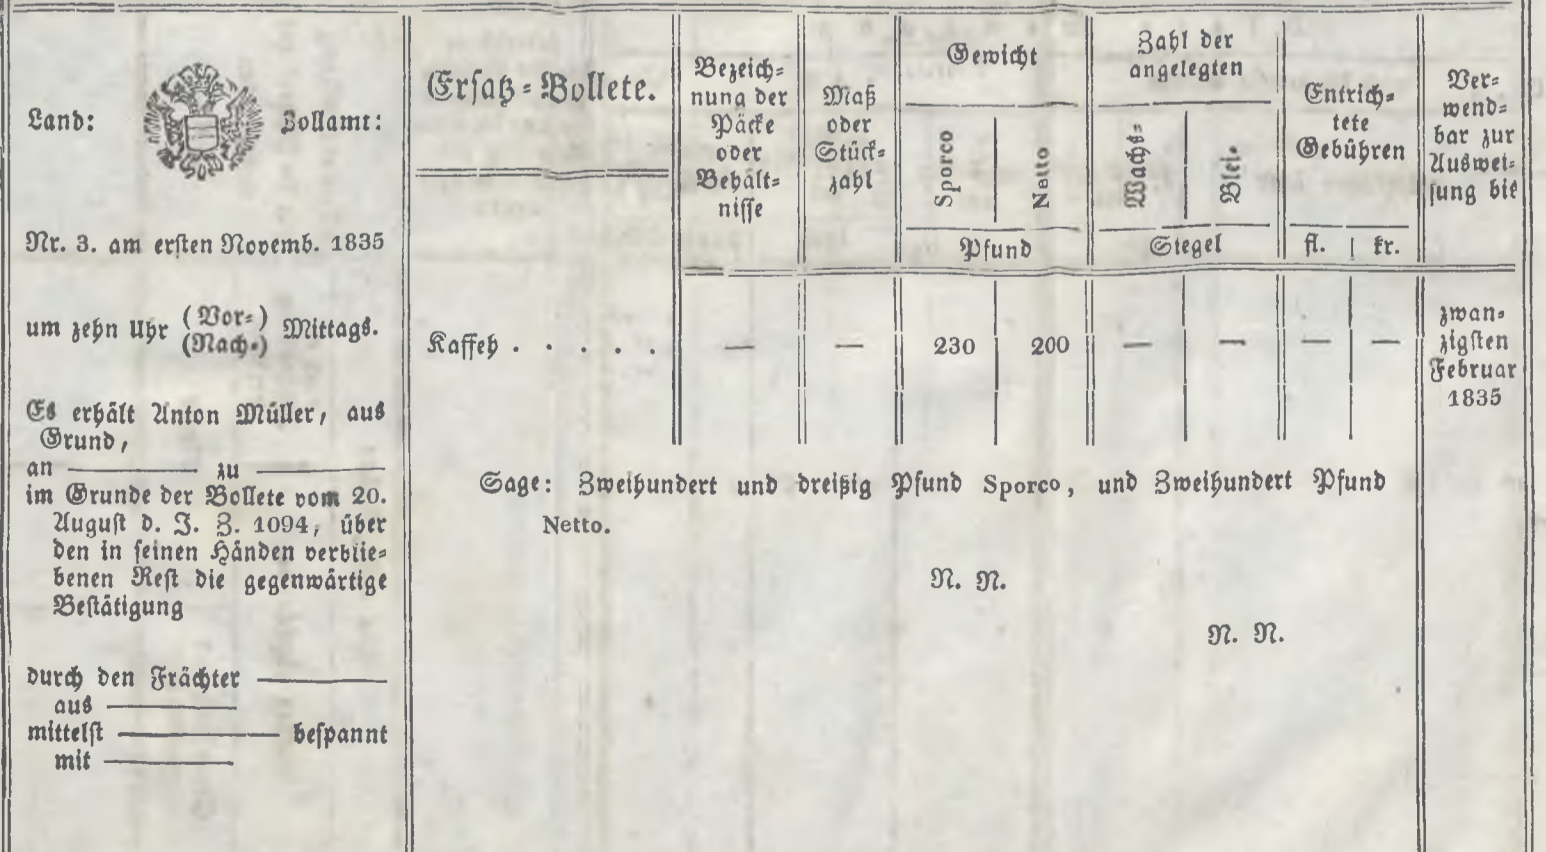 Land:
Zollamt:
Nr. 3. am ersten Novemb. 1835
um zehn Uhr (Vor-) Mittags.
(Nach-)
Es erhält Anton Müller, aus
Grund,
an ——— zu ———
im Grunde der Bollete vom 20.
August d. J. Z. 1094, über
den in seinen Händen verblie-
benen Rest die gegenwärtige
Bestätigung
durch den Frächter ———
aus ———
mittelst ——— bespannt
mit ———
Ersatz-Bollete.
Bezeich-
nung der
Päcke
oder
Behält-
nisse
Maß
oder
Stück-
zahl
Gewicht
Sporco
Netto
Pfund
Zahl der
angelegten
Wachs-
Blei-
Siegel
Entrich-
tete
Gebühren
fl. | kr.
Ver-
wend-
bar zur
Auswei-
sung bis
Kaffeh . . . . . — — 230 200 — — — —
zwan-
zigsten
Februar
1835
Sage: Zweihundert und dreißig Pfund Sporco, und Zweihundert Pfund
Netto.
N. N.
N. N.